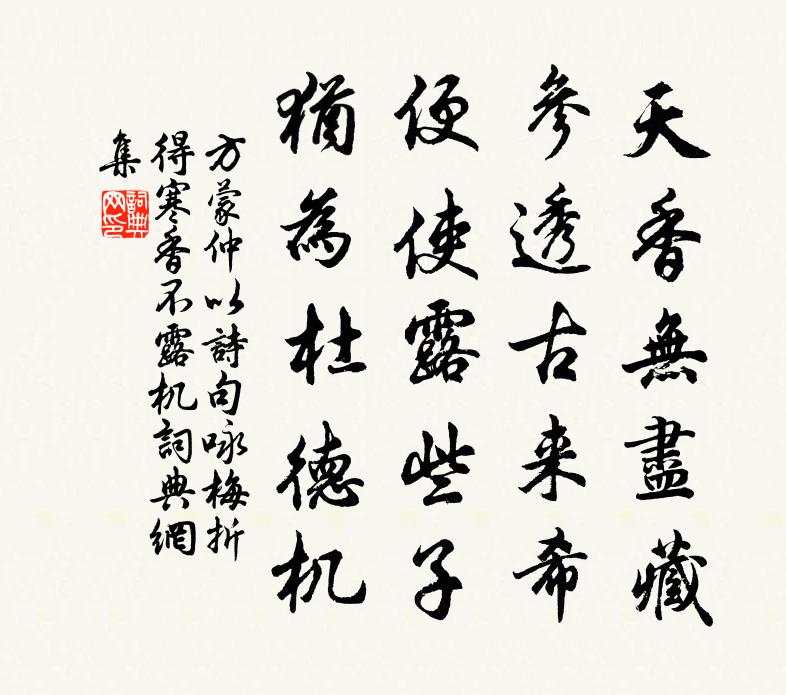 天香無盡藏
參透古来希
便使露些子
猶為杜德机
方蒙仲以詩句咏梅折
得寒香不露机詞典網
集
詞典
网印